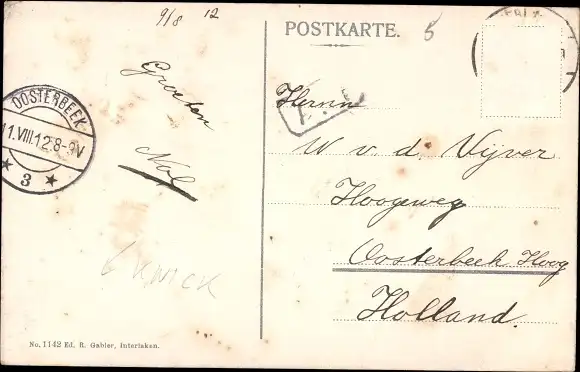 9/8 12
POSTKARTE.
5
OOSTERBEEK
11.VIII.12.8-9V
3
Groeten
Nol
Herrn
W v. d. Vijver
Hoogeweg
Oosterbeek Hoog
Holland.
KNICK
No. 1142 Ed. R. Gabler, Interlaken.